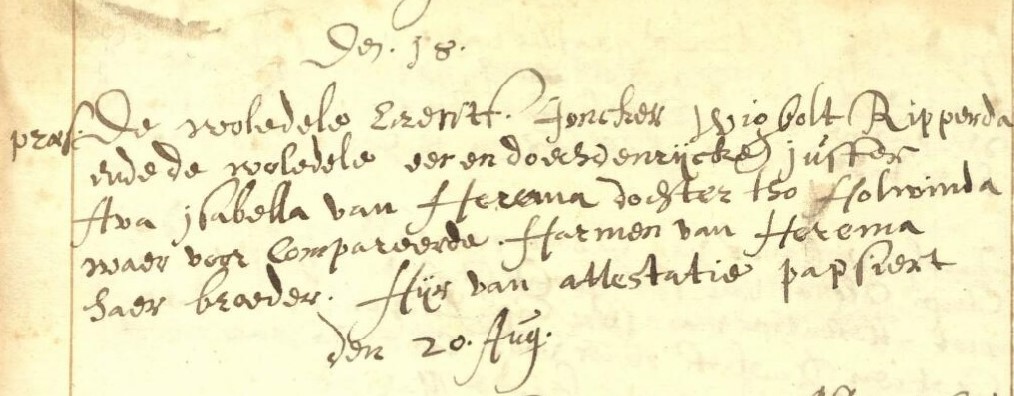 Den. 18.
præs. De woledele Erentf. Joncker Wigbolt Ripperda
ende de woledele eer en doechdenrijcke juffer
Ava Isabella van Herema dochter tho Holwinda
waer voor Compareerde Harmen van Herema
haer broeder. Hijr van attestatie papsiert
den 20. Aug.